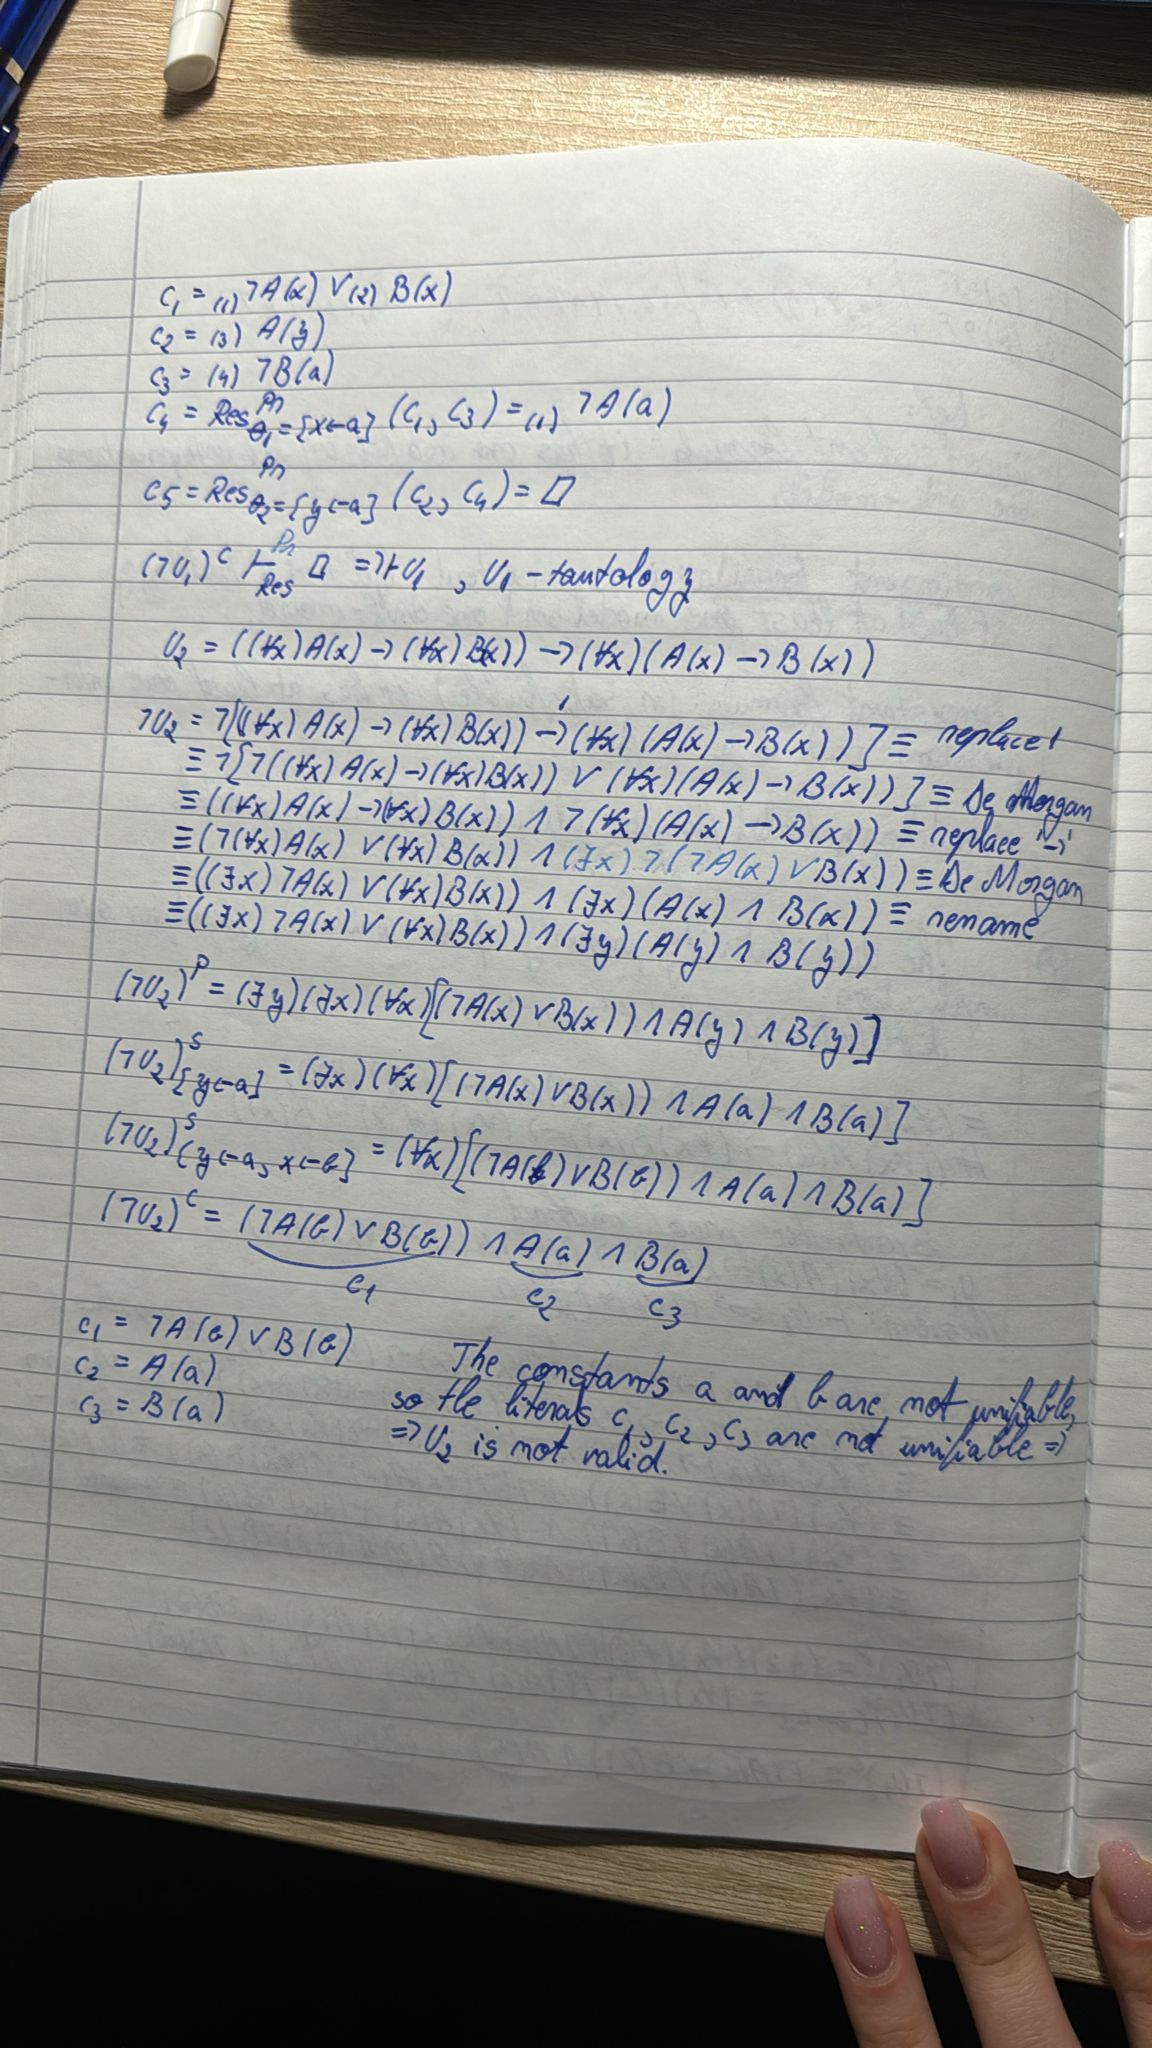 C₁ = ₍₁₎ ¬A(x) ∨₍₂₎ B(x)
C₂ = (3) A(y)
C₃ = (4) ¬B(a)
C₄ = Res^Pr_θ₁={x←a} (C₁, C₃) = ₍₁₎ ¬A(a)
C₅ = Res^Pr_θ₂={y←a} (C₂, C₄) = □
(¬U₁)^C ⊢^Pr_Res □ => ⊢U₁ , U₁ - tautology
U₂ = ((∀x)A(x) → (∀x)B(x)) → (∀x)(A(x) → B(x))
¬U₂ = ¬[((∀x)A(x) → (∀x)B(x)) → (∀x)(A(x) → B(x))] ≡ replace 1
≡ ¬[¬((∀x)A(x) → (∀x)B(x)) ∨ (∀x)(A(x) → B(x))] ≡ De Morgan
≡ ((∀x)A(x) → (∀x)B(x)) ∧ ¬(∀x)(A(x) → B(x)) ≡ replace '→'
≡ (¬(∀x)A(x) ∨ (∀x)B(x)) ∧ (∃x)¬(¬A(x) ∨ B(x)) ≡ De Morgan
≡ ((∃x)¬A(x) ∨ (∀x)B(x)) ∧ (∃x)(A(x) ∧ B(x)) ≡ rename
≡ ((∃x)¬A(x) ∨ (∀x)B(x)) ∧ (∃y)(A(y) ∧ B(y))
(¬U₂)^P = (∃y)(∃x)(∀x)[(¬A(x) ∨ B(x)) ∧ A(y) ∧ B(y)]
(¬U₂)^S_{y←a} = (∃x)(∀x)[(¬A(x) ∨ B(x)) ∧ A(a) ∧ B(a)]
(¬U₂)^S_{y←a, x←b} = (∀x)[(¬A(b) ∨ B(b)) ∧ A(a) ∧ B(a)]
(¬U₂)^C = (¬A(b) ∨ B(b)) ∧ A(a) ∧ B(a)
C₁ C₂ C₃
C₁ = ¬A(b) ∨ B(b)
C₂ = A(a)
C₃ = B(a)
The constants a and b are not unifiable,
so the literals C₁, C₂, C₃ are not unifiable =>
=> U₂ is not valid.